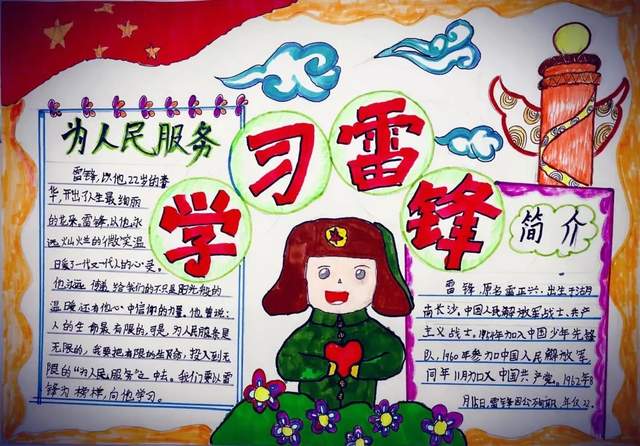 学习雷锋
为人民服务
雷锋，以他22岁的青
华，开出了人生最绚丽
的花朵。雷锋，以他永
远灿烂的微笑温
暖了一代又一代人的心灵。
他永远 传递给我们的不只是阳光般的
温暖还有他心中信仰的力量。他曾说：
人的生命是有限的，可是，为人民服务是
无限的，我要把有限的生命，投入到无
限的“为人民服务”之中去。我们要以雷
锋为榜样，向他学习。
简介
雷锋，原名雷正兴，出生于湖
南长沙，中国人民解放军战士，共产
主义战士，1954年加入中国少年先锋
队，1960年参加中国人民解放军
同年11月加入中国共产党。1962年8
月15日，雷锋因公殉职，年仅22